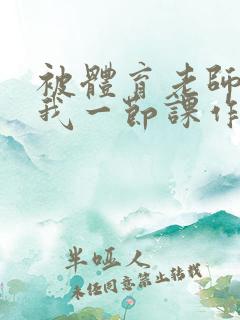 被體育老師
我一節課作
半啞人
未經同意禁止轉載